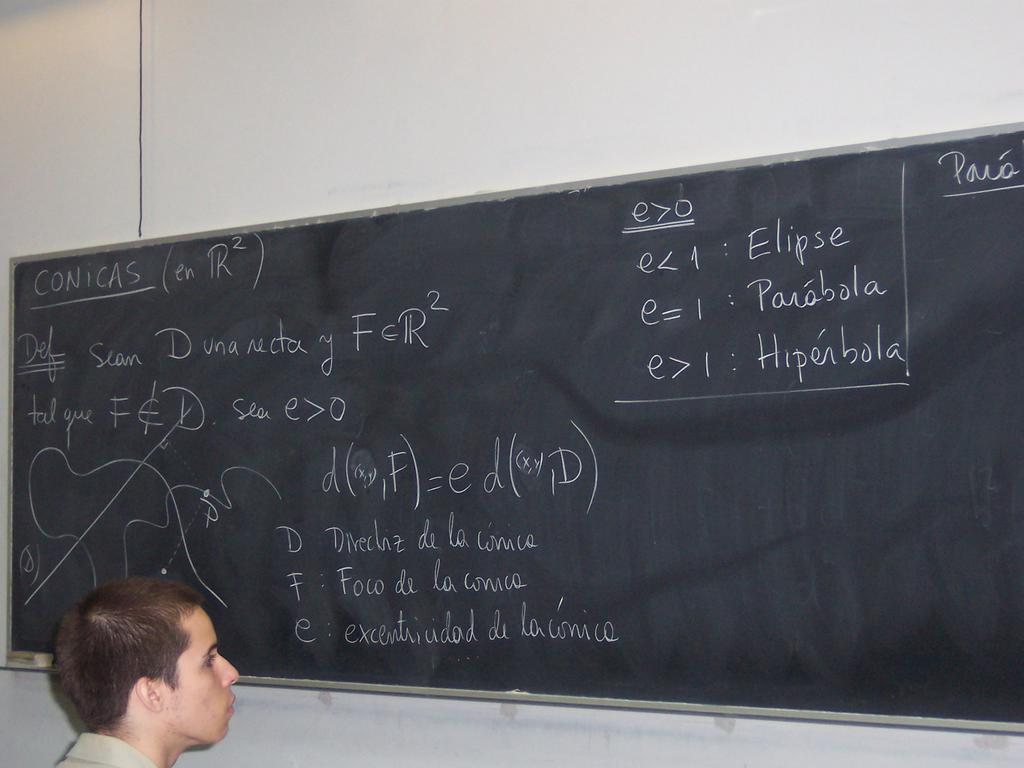 CONICAS (en ℝ²)
Def Sean D una recta y F ∈ ℝ²
tal que F ∉ D. sea e>0
d((x,y),F) = e d((x,y),D)
D Directriz de la cónica
F : Foco de la conica
e : excentricidad de la cónica
e>0
e<1 : Elipse
e=1 : Parábola
e>1 : Hipérbola
Pará